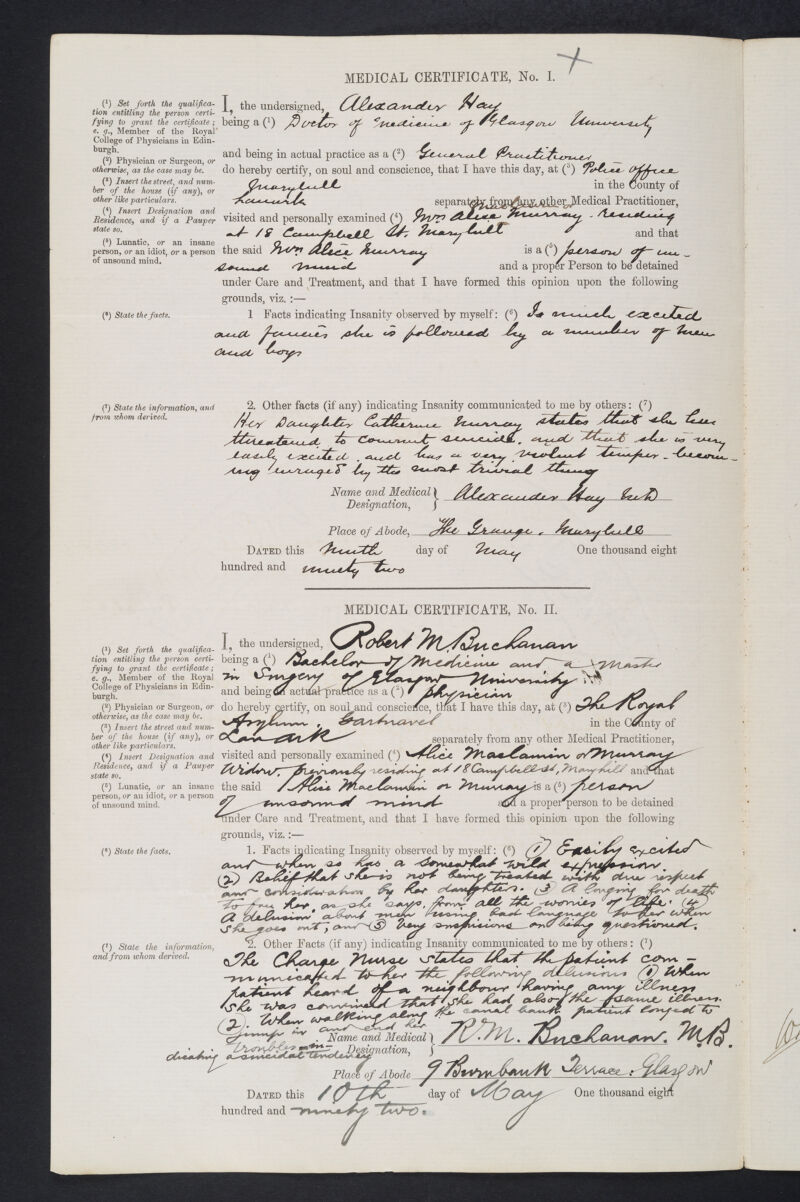 MEDICAL CERTIFICATE, No. I.
(¹) Set forth the qualifica-
tion entitling the person certi-
fying to grant the certificate;
e. g., Member of the Royal
College of Physicians in Edin-
burgh.
(²) Physician or Surgeon, or
otherwise, as the case may be.
(³) Insert the street, and num-
ber of the house (if any), or
other like particulars.
(⁴) Insert Designation and
Residence, and if a Pauper
state so.
(⁵) Lunatic, or an insane
person, or an idiot, or a person
of unsound mind.
I, the undersigned, Alexander Hay
being a (¹) Doctor of Medicine of Glasgow University
and being in actual practice as a (²) General Practitioner
do hereby certify, on soul and conscience, that I have this day, at (³) Police office
Maryhill in the County of
Lanark separately from any other Medical Practitioner,
visited and personally examined (⁴) Mrs Alice Murray. residing
at 18 Campbell St. Maryhill and that
the said Mrs Alice Murray is a (⁵) person of un-
sound mind and a proper Person to be detained
under Care and Treatment, and that I have formed this opinion upon the following
grounds, viz. :—
(⁶) State the facts.
1 Facts indicating Insanity observed by myself: (⁶) Is much excited
and fancies she is followed by a number of men
and boys
(⁷) State the information, and
from whom derived.
2. Other facts (if any) indicating Insanity communicated to me by others: (⁷)
Her Daughter Catherine Murray states that she has
threatened to commit suicide. and that she is very
easily excited. and has a very violent temper - becom-
ing enraged by the most trivial thing
Name and Medical Designation, } Alexander Hay M.D
Place of Abode, The Grange. Maryhill
DATED this Ninth day of May One thousand eight
hundred and ninety two
MEDICAL CERTIFICATE, No. II.
(¹) Set forth the qualifica-
tion entitling the person certi-
fying to grant the certificate;
e. g., Member of the Royal
College of Physicians in Edin-
burgh.
(²) Physician or Surgeon, or
otherwise, as the case may be.
(³) Insert the street and num-
ber of the house (if any), or
other like particulars.
(⁴) Insert Designation and
Residence, and if a Pauper
state so.
(⁵) Lunatic, or an insane
person, or an idiot, or a person
of unsound mind.
I, the undersigned, Robert M. Buchanan
being a (¹) Bachelor of Medicine and a Master
in Surgery of Glasgow University
and being in actual practice as a (²) physician
do hereby certify, on soul and conscience, that I have this day, at (³) The Royal
Asylum. Gartnavel in the County of
Lanark separately from any other Medical Practitioner,
visited and personally examined (⁴) Alice Maclamin or Murray
Widow. previously residing at 18 Campbell st, Maryhill and that
the said Alice Maclamin or Murray is a (⁵) person
of unsound mind and a proper person to be detained
under Care and Treatment, and that I have formed this opinion upon the following
grounds, viz. :—
(⁶) State the facts.
1. Facts indicating Insanity observed by myself: (⁶) (1) Easily excited
and when so has a somewhat wild expression.
(2) Belief that she is not being treated with due respect
and consideration by her daughters. (3) A longing for death
to free her, as she says, from all the worries of life. (4)
A delusion about men using bad language to her when
she goes out, and (5) Very suspicious on being questioned.
(⁷) State the information,
and from whom derived.
2. Other Facts (if any) indicating Insanity communicated to me by others: (⁷)
The Charge Nurse states that the patient com-
municated to her the following delusions (1) When
patient heard of a neighbour having any illness
she was convinced that she had also the same illness.
(2) When walking along the canal bank patient longed to
jump in and end her
troubles in-
dicating a suicidal tendency
Name and Medical Designation, } R. M. Buchanan. M.B.
Place of Abode 9 Burnbank Terrace. Glasgow
DATED this 10th day of May One thousand eight
hundred and ninety two.